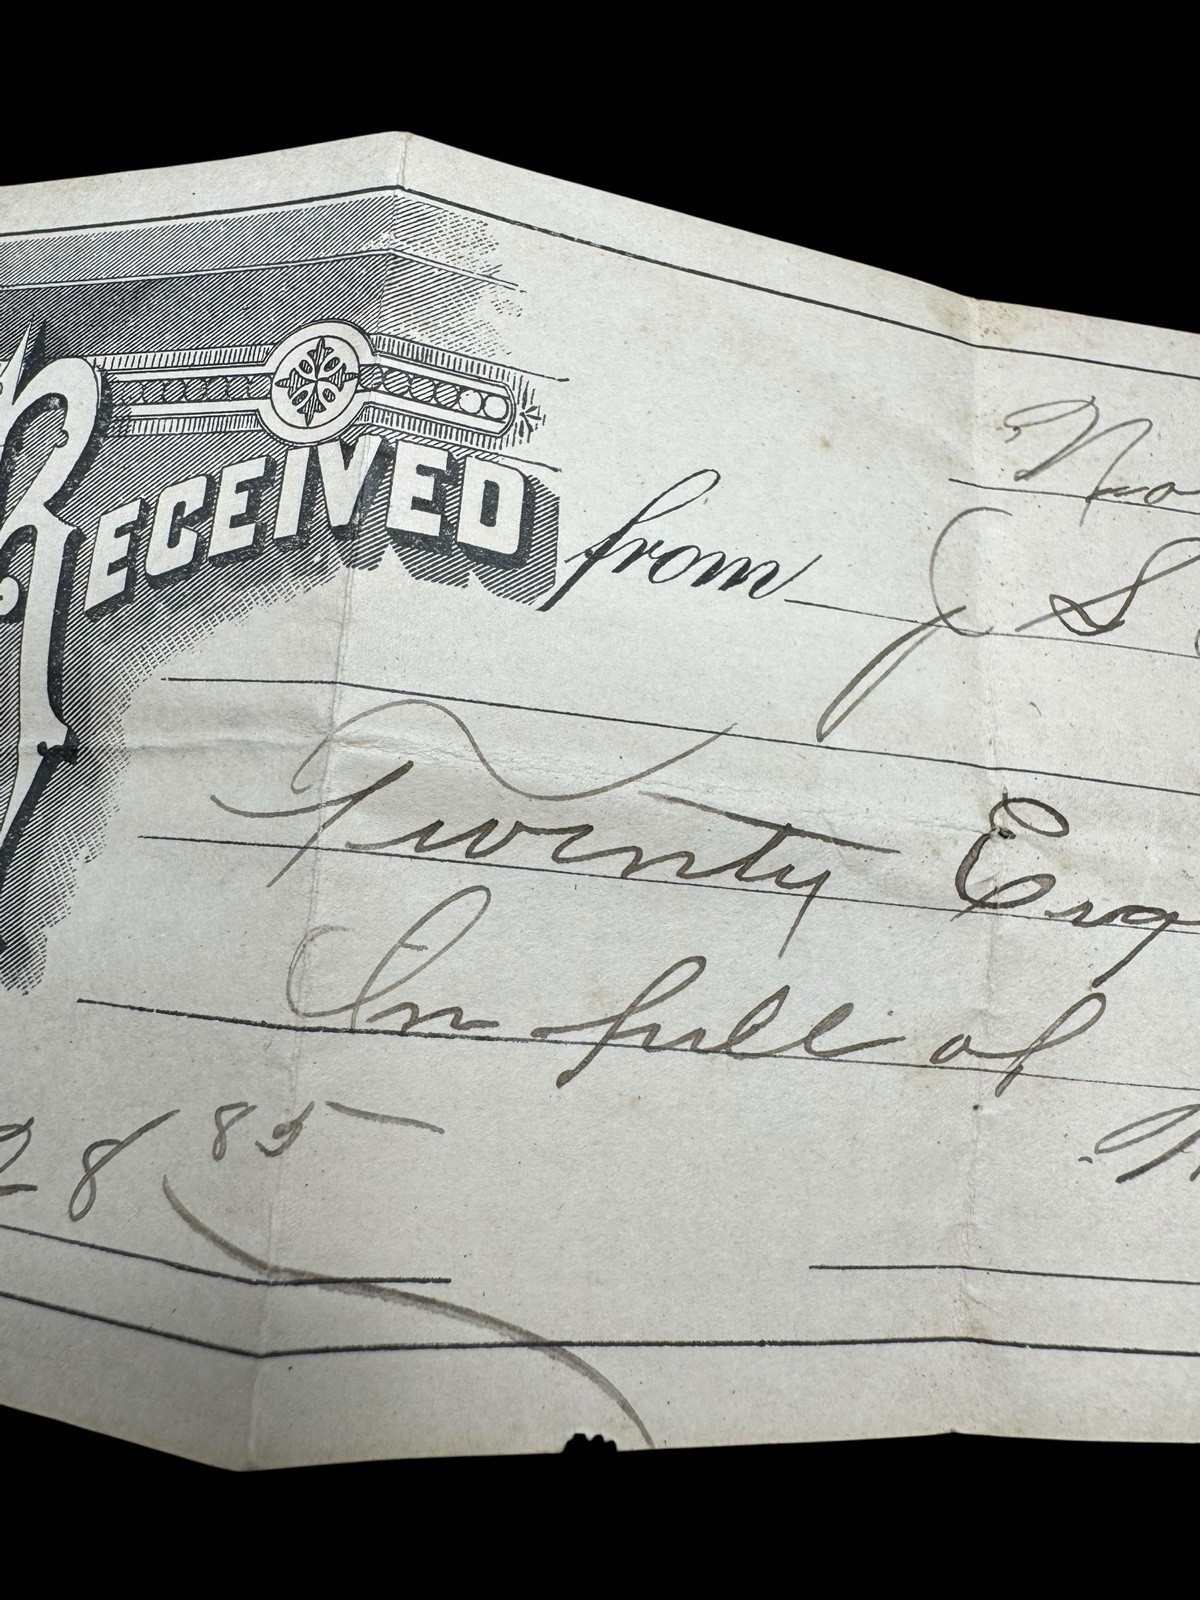 No
RECEIVED from J S
Twenty Eig
In full of
28 85